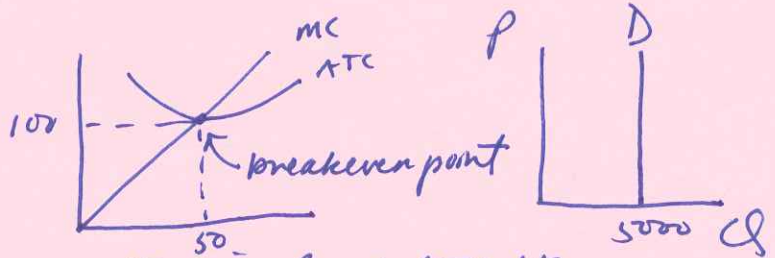 MC
ATC
100
breakeven point
50
P
D
5000